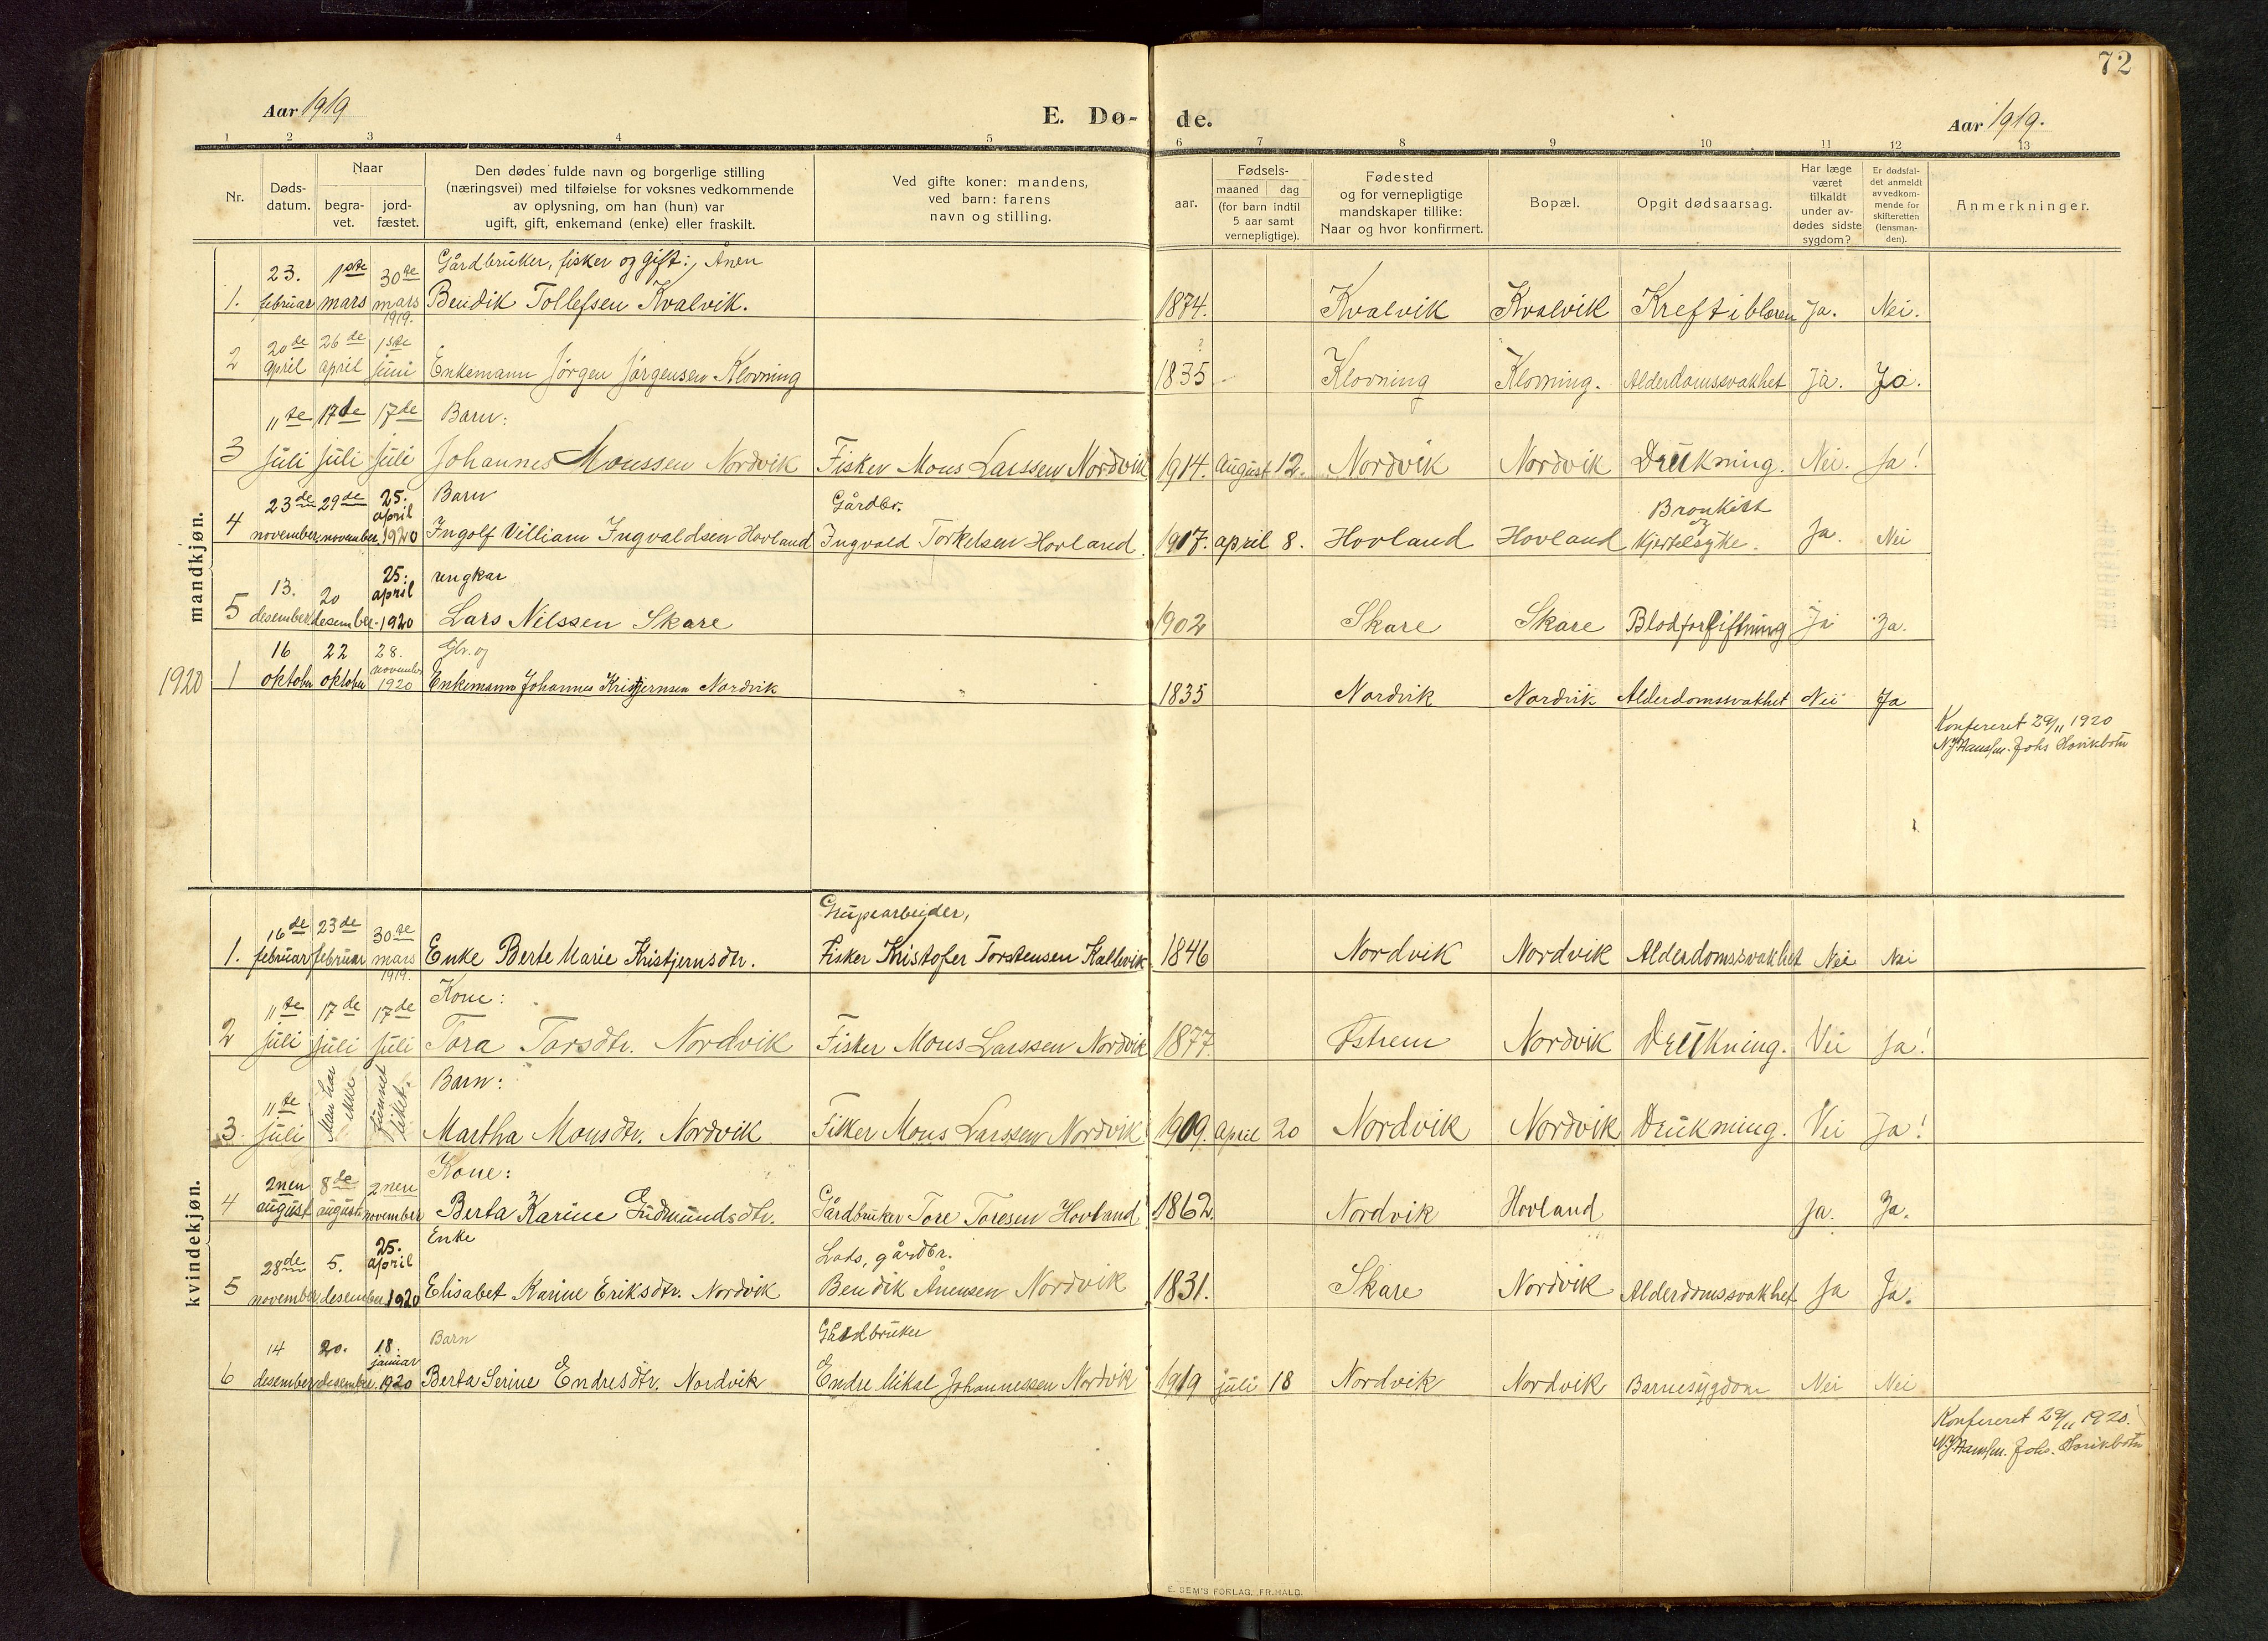 72
Aar 1919
E. Dø-
de.
Aar 1919.
1 2 3 4 5 6 7 8 9 10 11 12 13
Nr.
Døds-
datum.
Naar
begra-
vet.
jord-
fæstet.
Den dødes fulde navn og borgerlige stilling
(næringsvei) med tilføielse for voksnes vedkommende
av oplysning, om han (hun) var
ugift, gift, enkemand (enke) eller fraskilt.
Ved gifte koner: mandens,
ved barn: farens
navn og stilling.
aar.
Fødsels-
maaned dag
(for barn indtil
5 aar samt
vernepligtige).
Fødested
og for vernepligtige
mandskaper tillike:
Naar og hvor konfirmert.
Bopæl.
Opgit dødsaarsag.
Har læge
været
tilkaldt
under av-
dødes sidste
sygdom?
Er dødsfal-
det anmeldt
av vedkom-
mende for
skifteretten
(lensman-
den).
Anmerkninger.
mandkjøn.
23. 1ste 30te Gårdbruker, fisker og gift: Ånen
1. februar mars mars 1919. Bendik Tollefsen Kvalvik. 1874. Kvalvik Kvalvik Kreft i blæren Ja. Nei.
20de 26de 1ste ?
2 april april juni Enkemann Jörgen Jörgensen Klovning 1835 Klovning Klovning. Alderdomssvakhet Ja. Ja.
11te 17de 17de Barn:
3 juli juli juli Johannes Monssen Nordvik Fisker Mons Larssen Nordvik 1914. August 12. Nordvik Nordvik Drukning. Nei. Ja!
23de 29de 25. april Barn Gårdbr. Bronkitt og
4 november november 1920 Ingolf Villiam Ingvaldsen Hovland Ingvald Torkelsen Hovland. 1907. april 8. Hovland Hovland Kjertelsyke. Ja. Nei
13. 20 25. april ungkar
5 desember desember 1920 Lars Nilssen Skare 1902 Skare Skare Blodforgiftning Ja Ja.
16 22 28. Gbr. og
1920 1 oktober oktober november 1920 Enkemann Johannes Kristjernsen Nordvik 1835 Nordvik Nordvik Alderdomssvakhet Nei Ja
Konfereret 29/11 1920
Johs Hovikbotn
kvindekjøn.
16de 23de 30te Grubearbeider,
1. februar februar mars 1919. Enke Berte Marie Kristjernsdtr. Fisker Kristofer Torstensen Kallevik 1846 Nordvik Nordvik Alderdomssvakhet Nei Nei
11te 17de 17de Kone:
2 juli juli juli Tora Torsdtr. Nordvik Fisker Mons Larssen Nordvik 1877. Østrem Nordvik Drukning. Nei Ja!
11te Man har ikke funnet liket. Barn:
3. juli Martha Monsdtr. Nordvik Fisker Mons Larssen Nordvik 1909. April 20 Nordvik Nordvik Drukning. Nei Ja!
2nen 8de 2nen Kone:
4 august august november Berta Karine Gudmundsdtr. Gårdbruker Tore Toresen Hovland 1862. Nordvik Hovland Ja. Ja.
28de 5. 25. april Enke Lods, gårdbr.
5 november desember 1920 Elisabet Karine Eriksdtr. Nordvik Bendik Ånensen Nordvik 1831. Skare Nordvik Alderdomssvakhet Ja Ja.
14 20. 18. januar Barn Gårdbruker
6 desember desember 1920 Berta Serine Endresdtr. Nordvik Endre Mikal Johannessen Nordvik 1919 juli 18 Nordvik Nordvik Barnesygdom Nei Nei
Konfereret 29/11 1920.
Johs. Hovikbotn
E. SEM'S FORLAG, FR.HALD.